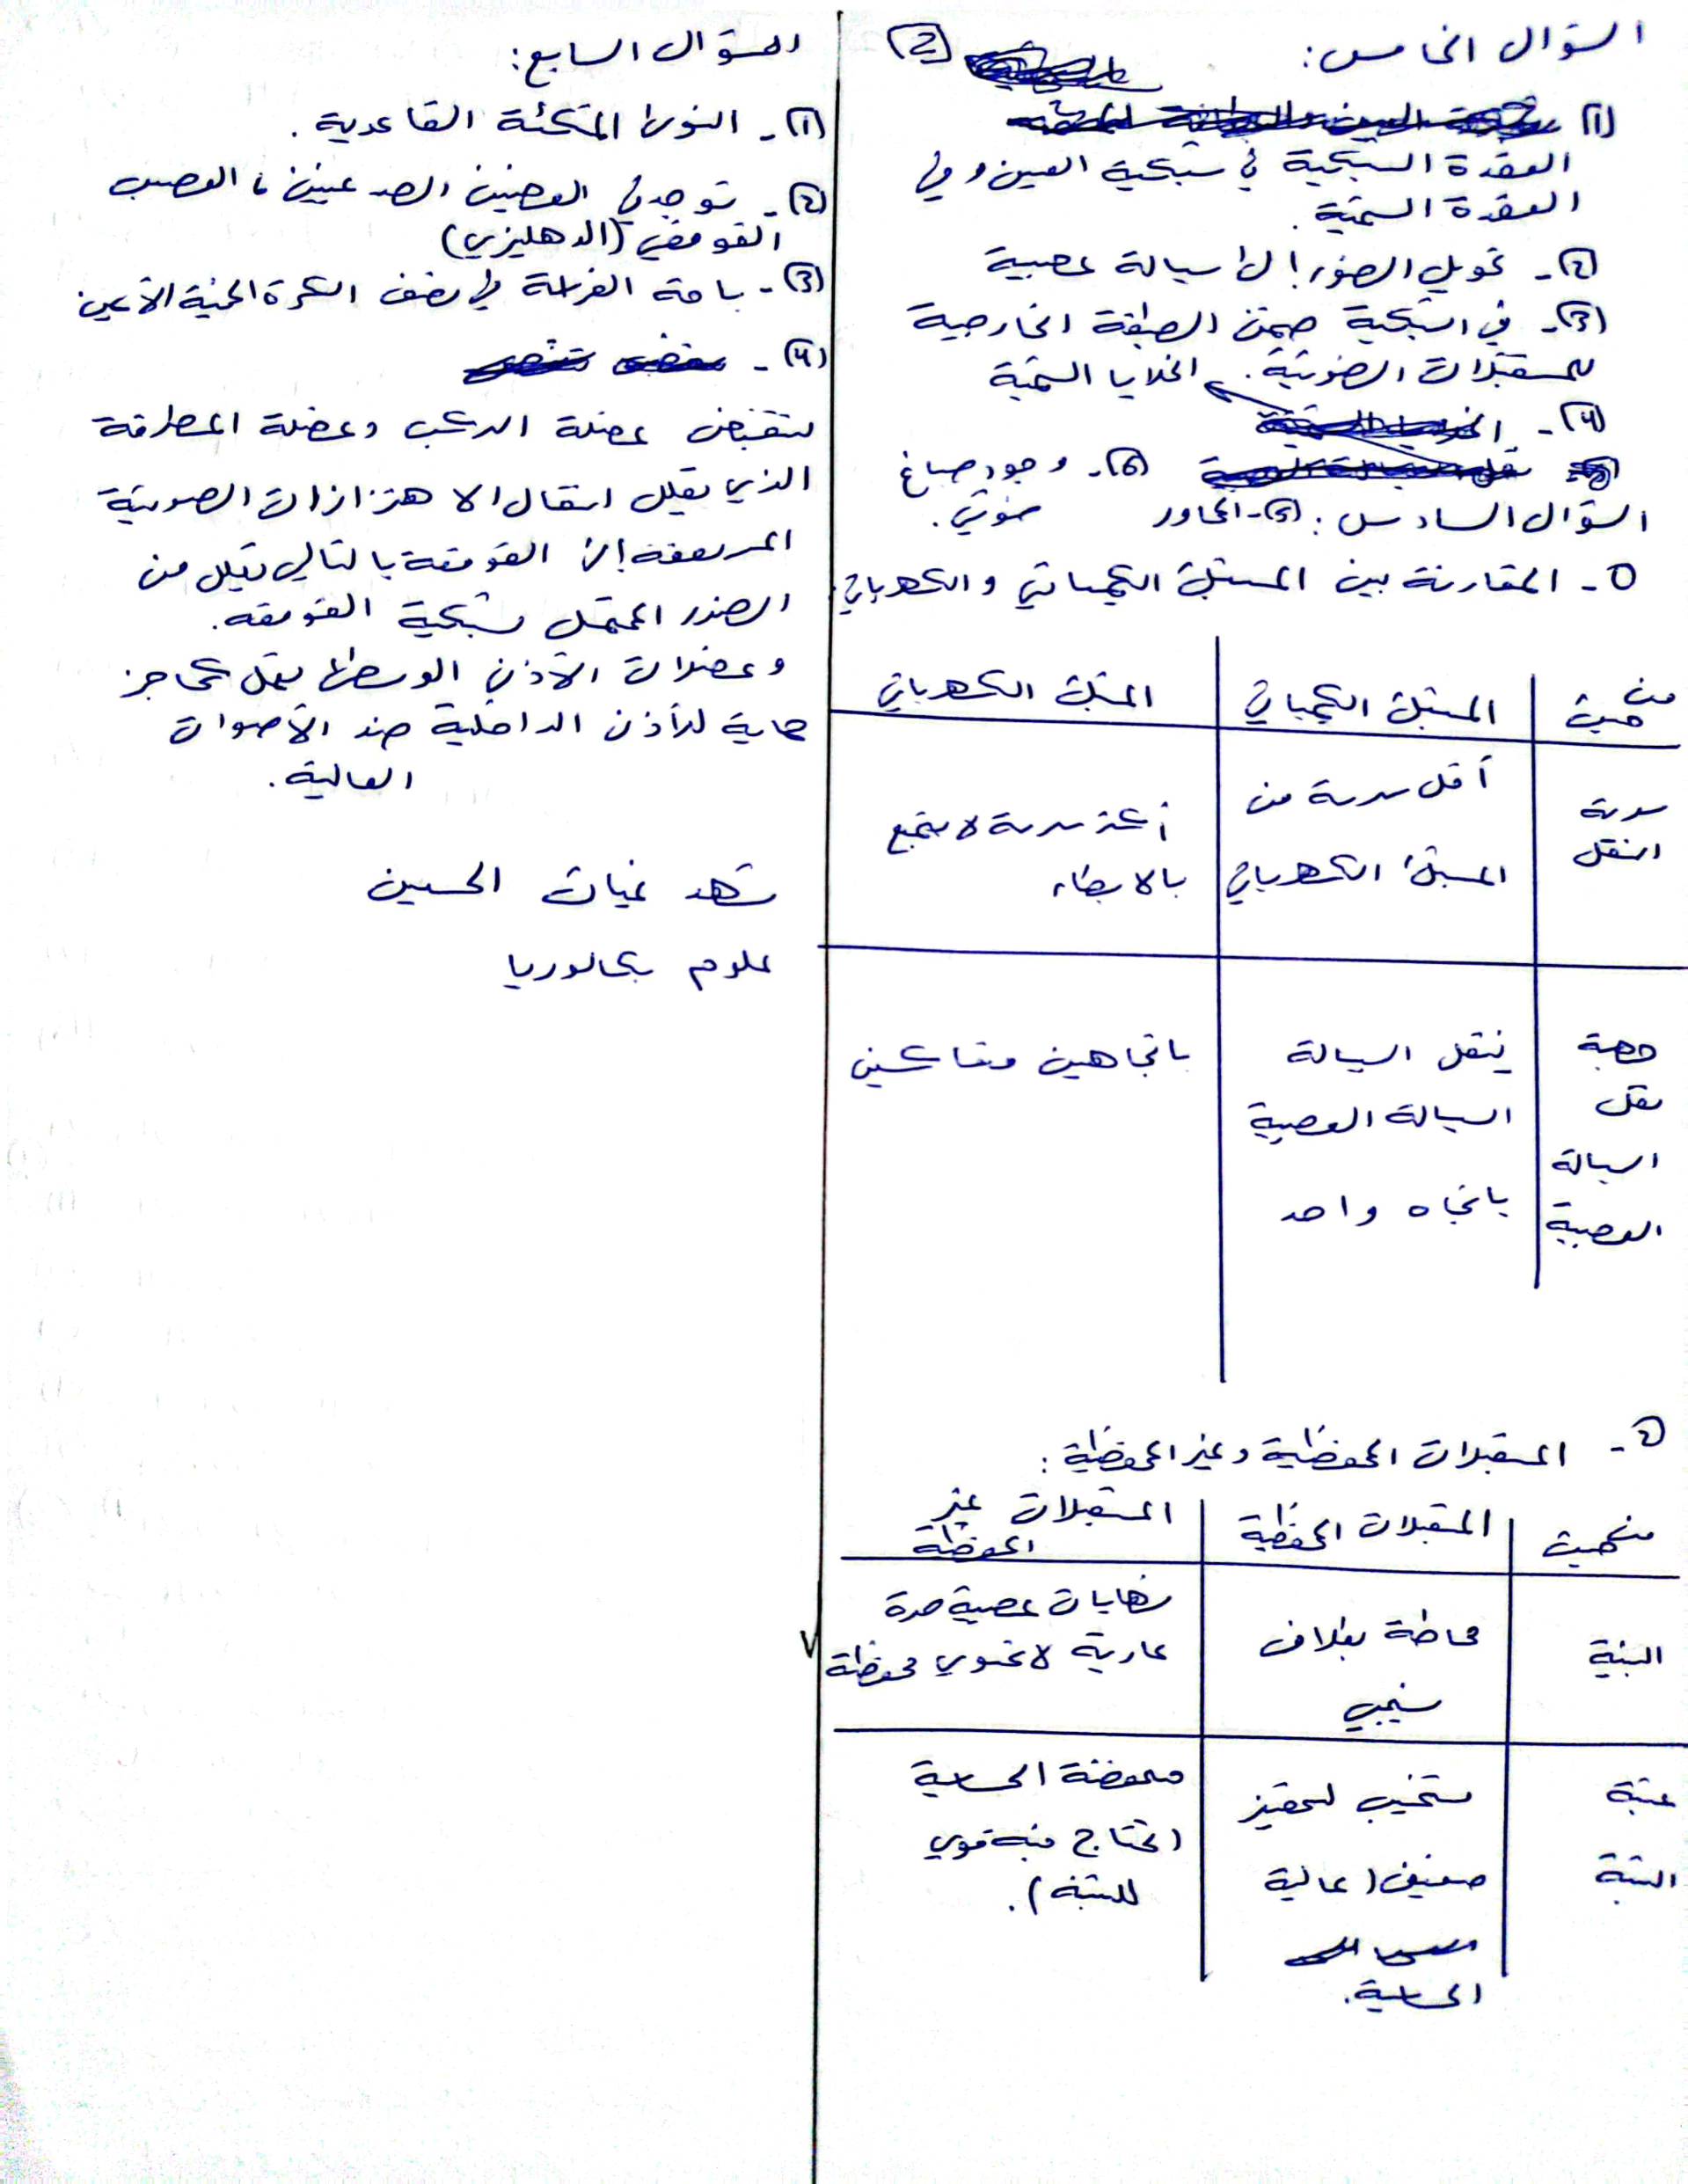 السؤال الخامس:
(2)
(1)
العقدة الشبكية في شبكية العين وفي
العقدة السمية.
(2)- تحويل الضوء إلى سيالة عصبية
(3)- في الشبكية ضمن الطبقة الخارجية
للمستقبلات الضوئية.
(4)- الخلايا السمية
(6)- وجود صباغ
ضوئي.
السؤال السادس: (5)- المحاور
1- المقارنة بين المشبك الكيميائي والكهربائي.
من حيث | المشبك الكيميائي | المشبك الكهربائي
سرعة النقل | أقل سرعة من المشبك الكهربائي | أكثر سرعة لا يتمتع بالإبطاء
جهة نقل السيالة العصبية | ينقل السيالة السيالة العصبية باتجاه واحد | باتجاهين متعاكسين
2- المستقبلات المحفظية وغير المحفظية:
من حيث | المستقبلات المحفظية | المستقبلات غير المحفظة
البنية | محاطة بغلاف نسيجي | نهايات عصبية حرة عارية لا تحتوي محفظة
عتبة التنبه | تستجيب لتحفيز ضعيف (عالية الحساسية. | منخفضة الحساسية (تحتاج منبه قوي للتنبه).
السؤال السابع:
(1)- النوى المتكئة القاعدية.
(2)- توجد في الفصين الصدغيين، العصب
القوقعي (الدهليزي)
(3)- باحة الفراسة في نصف الكرة المخية الأيمن
(4)-
تتقبض عضلة الركاب وعضلة المطرقة
الذي يقلل انتقال الاهتزازات الصوتية
المرتفعة إلى القوقعة بالتالي يقلل من
الضرر المحتمل بشبكية القوقعة.
وعضلات الأذن الوسطى يعمل كحاجز
حماية للأذن الداخلية ضد الأصوات
العالية.
شهد غياث الحسين
علوم بكالوريا